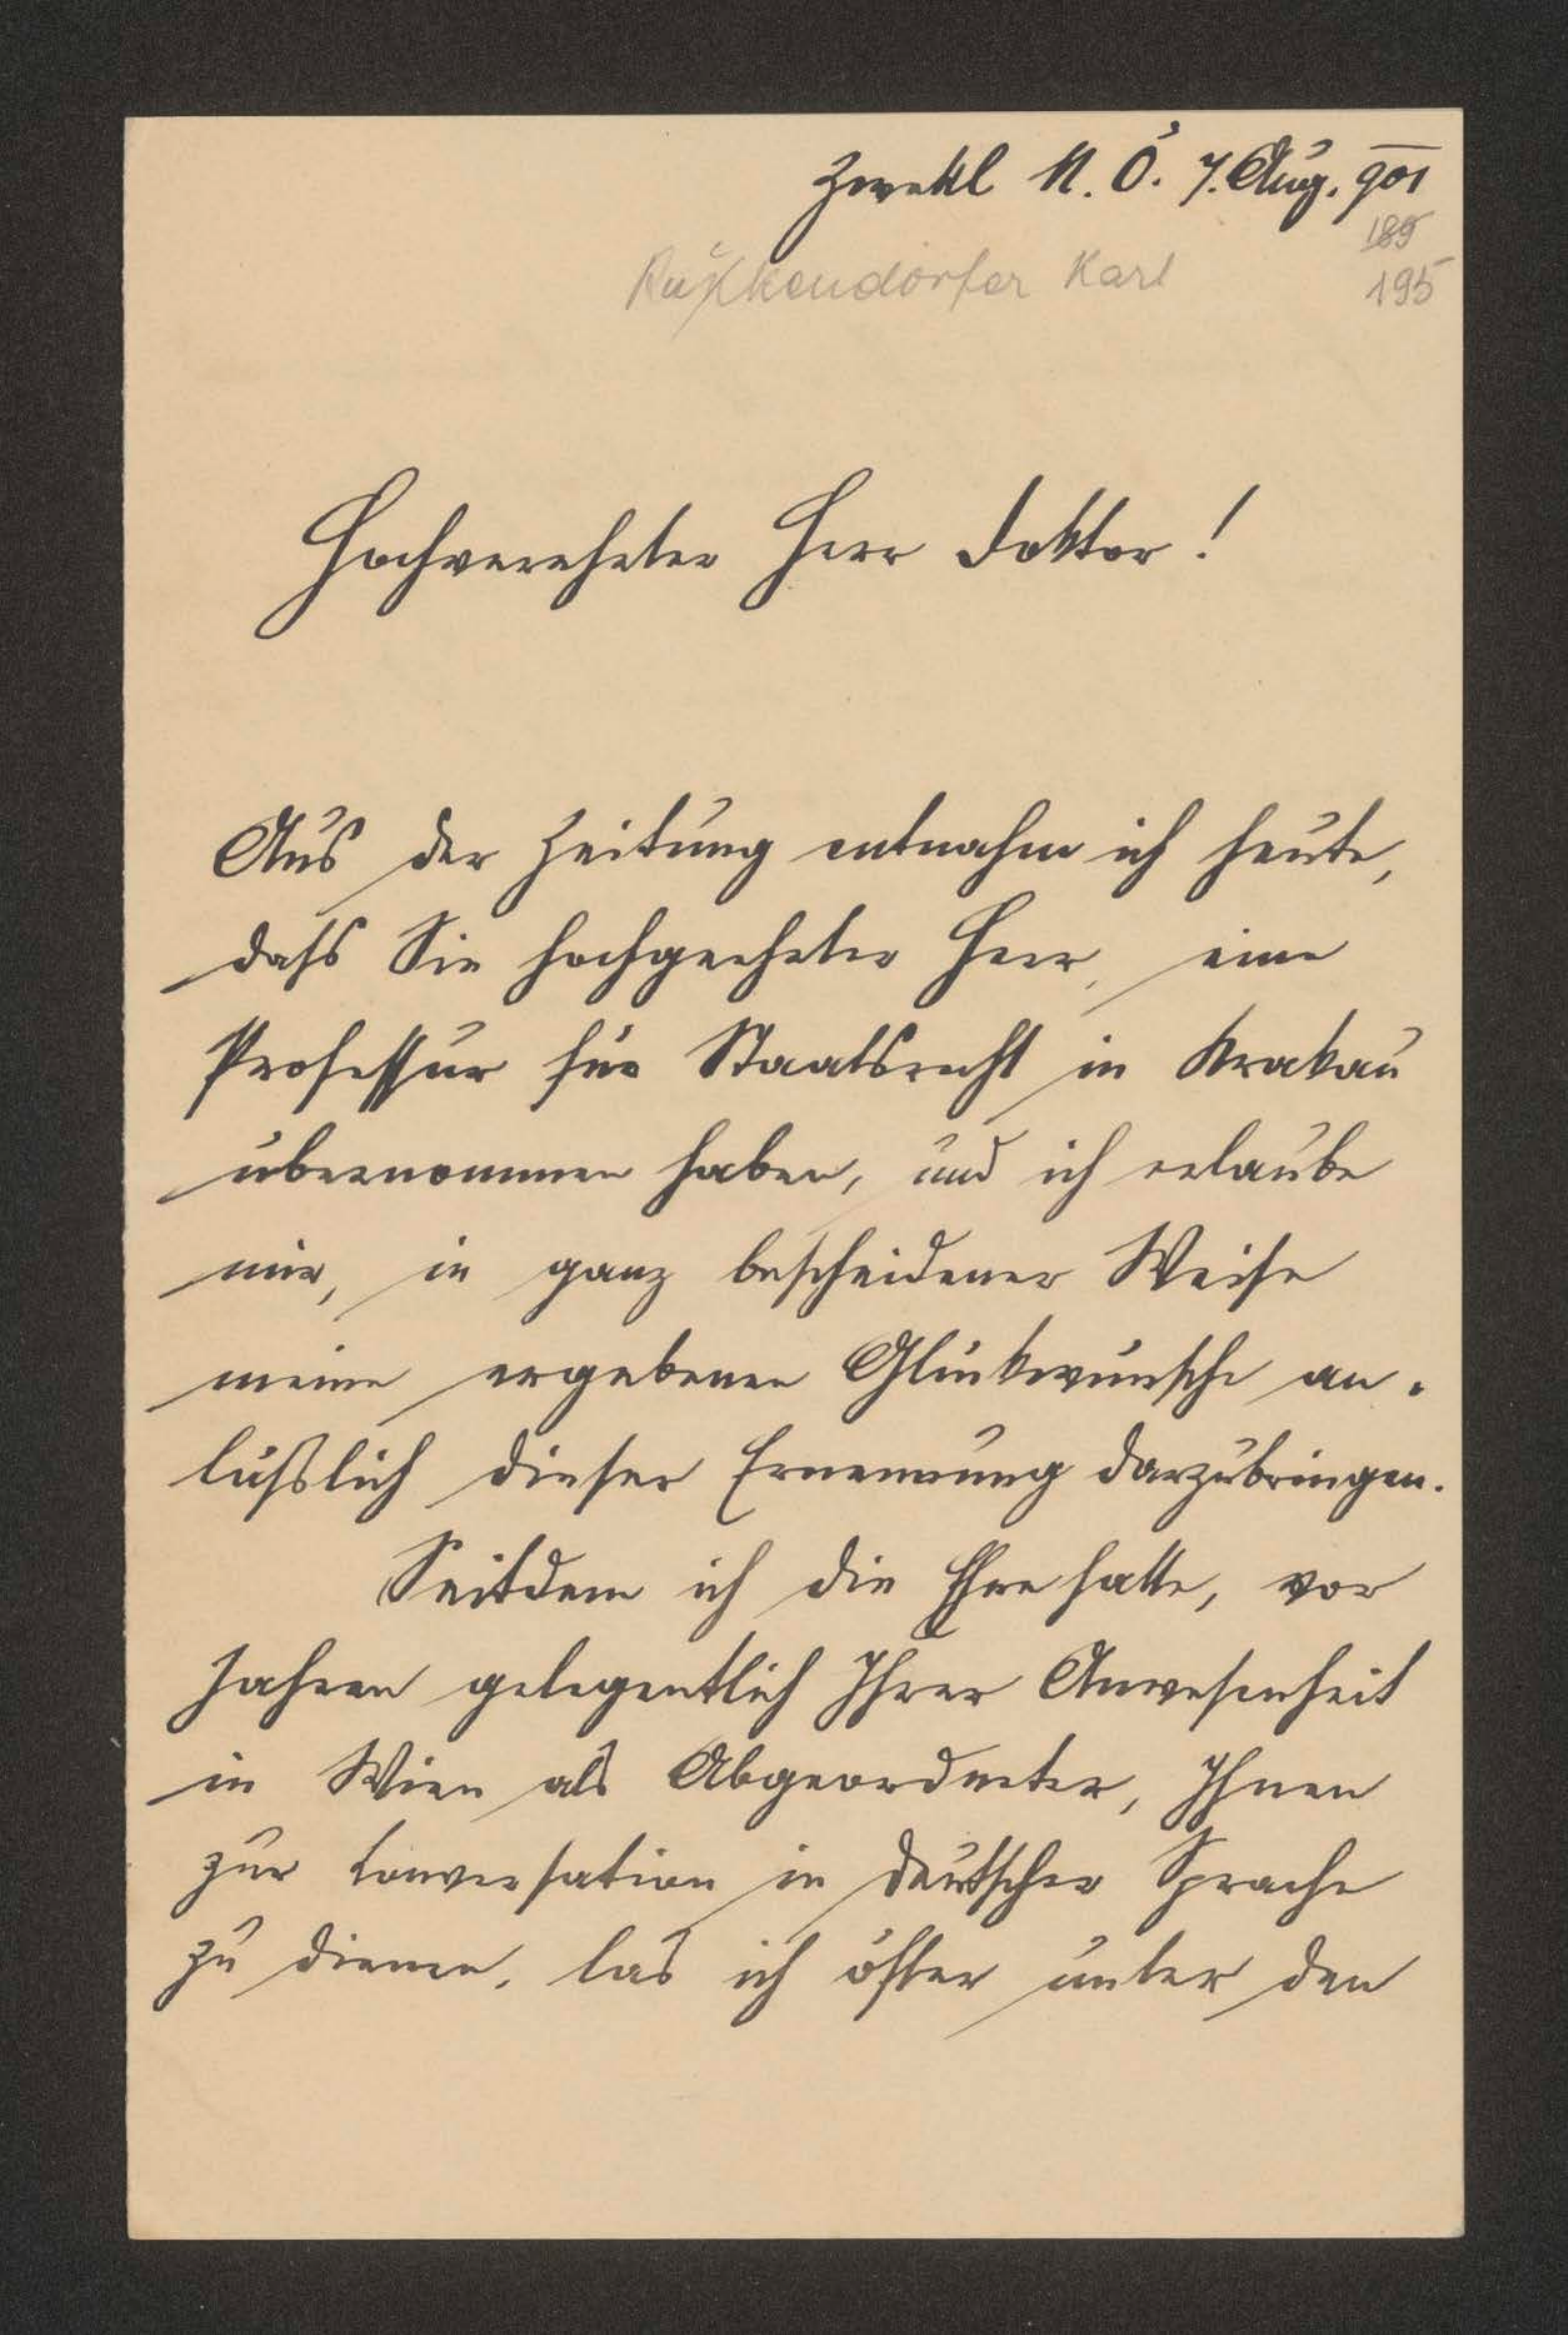 Zwettl N. Ö. 7. Aug. 901
189
195
Karl
Hochverehrter Herr Doktor!
Aus der Zeitung entnahm ich heute,
dass Sie hochgeehrter Herr, eine
Professur für Staatsrecht in Krakau
übernommen haben, und ich erlaube
mir, in ganz bescheidener Weise
meine ergebenen Glückwünsche an-
lässlich dieser Ernennung darzubringen.
Seitdem ich die Ehre hatte, vor
Jahren gelegentlich Ihrer Anwesenheit
in Wien als Abgeordneter, Ihnen
zur Conversation in deutscher Sprache
zu dienen, las ich öfter unter den